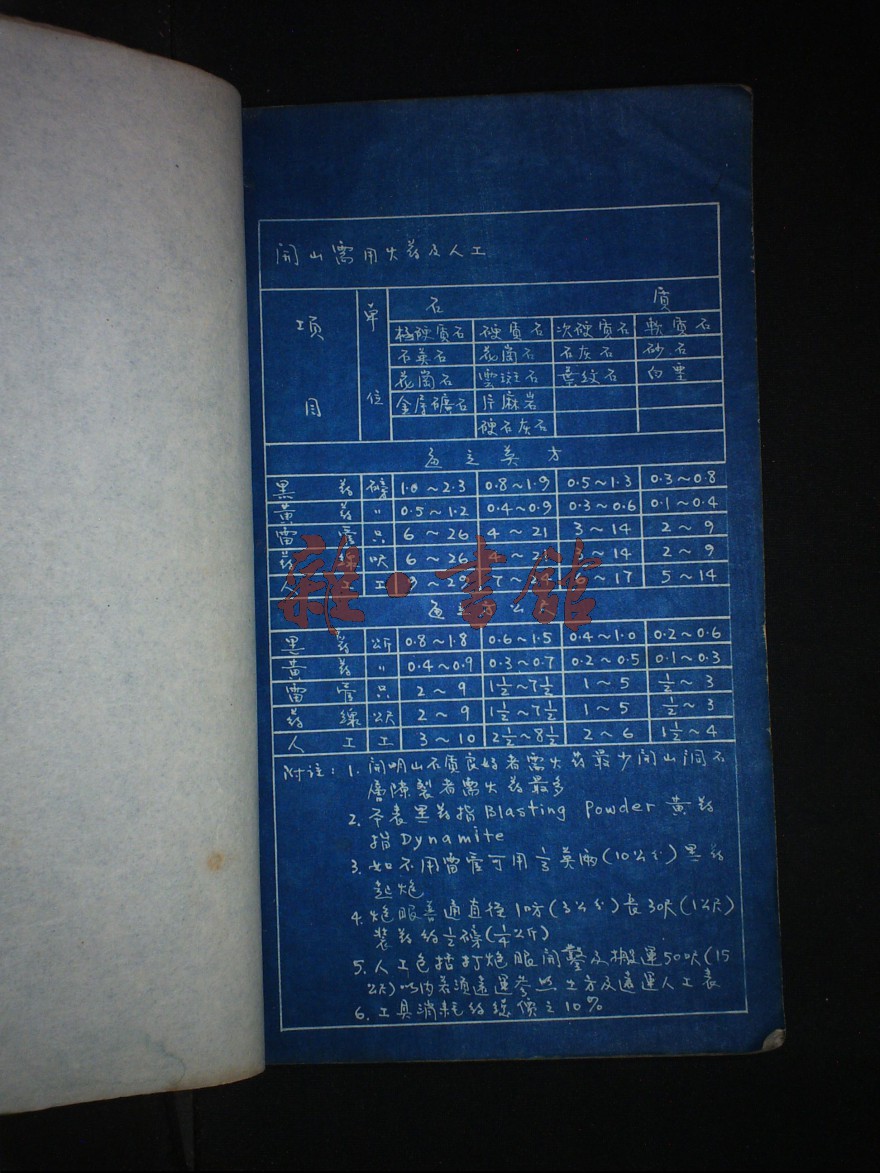 開山需用火药及人工
項目 單位 石質
極硬質石 硬質石 次硬質石 軟質石
石英石 花崗石 石灰石 砂石
花崗石 雲斑石 葉紋石 白堊
金屬礦石 片麻岩
硬石灰石
每立英方
黑药 磅 1.0～2.3 0.8～1.9 0.5～1.3 0.3～0.8
黄药 〃 0.5～1.2 0.4～0.9 0.3～0.6 0.1～0.4
雷管 只 6～26 4～21 3～14 2～9
药線 呎 6～26 4～21 3～14 2～9
人工 工 9～29 7～24 6～17 5～14
每立方公尺
黑药 公斤 0.8～1.8 0.6～1.5 0.4～1.0 0.2～0.6
黄药 〃 0.4～0.9 0.3～0.7 0.2～0.5 0.1～0.3
雷管 只 2～9 1½～7½ 1～5 ½～3
药線 公尺 2～9 1½～7½ 1～5 ½～3
人工 工 3～10 2½～8½ 2～6 1½～4
附注：1. 開明山石質良好者需火药最少開山洞石
層隙裂者需火药最多
2. 本表黑药指Blasting Powder 黄药
指Dynamite
3. 如不用雷管可用⅓英兩(10公分)黑药
起炮
4. 炮眼普通直徑1吋(3公分)長3呎(1公尺)
装药約½磅(¼公斤)
5. 人工包括打炮眼開鑿及搬運50呎(15
公尺)以内若須遠運参照土方及遠運人工表
6. 工具消耗約總價之10%
雜·書館